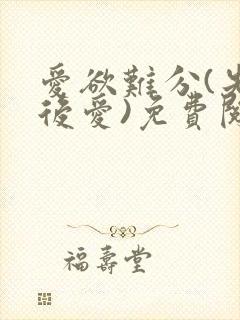 愛欲難分(先
後愛)免費閱
福壽堂